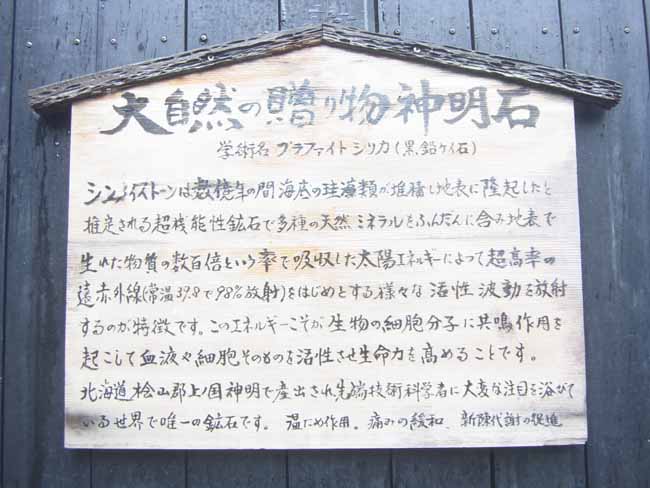 大自然の贈り物神明石
学術名 グラファイトシリカ(黒鉛ケイ石)
シンメイストーンは数億年の間海底の珪藻類が堆積し地表に隆起したと
推定される超機能性鉱石で多種の天然ミネラルをふんだんに含み地表で
生れた物質の数百倍という率で吸収した太陽エネルギーによって超高率の
遠赤外線(常温39.8で98%放射)をはじめとする様々な活性波動を放射
するのが特徴です。このエネルギーこそが生物の細胞分子に共鳴作用を
起こして血液や細胞そのものを活性させ生命力を高めることです。
北海道桧山郡上ノ国神明で産出され先端技術科学者に大変な注目を浴びて
いる世界で唯一の鉱石です。 温ため作用。痛みの緩和、新陳代謝の促進